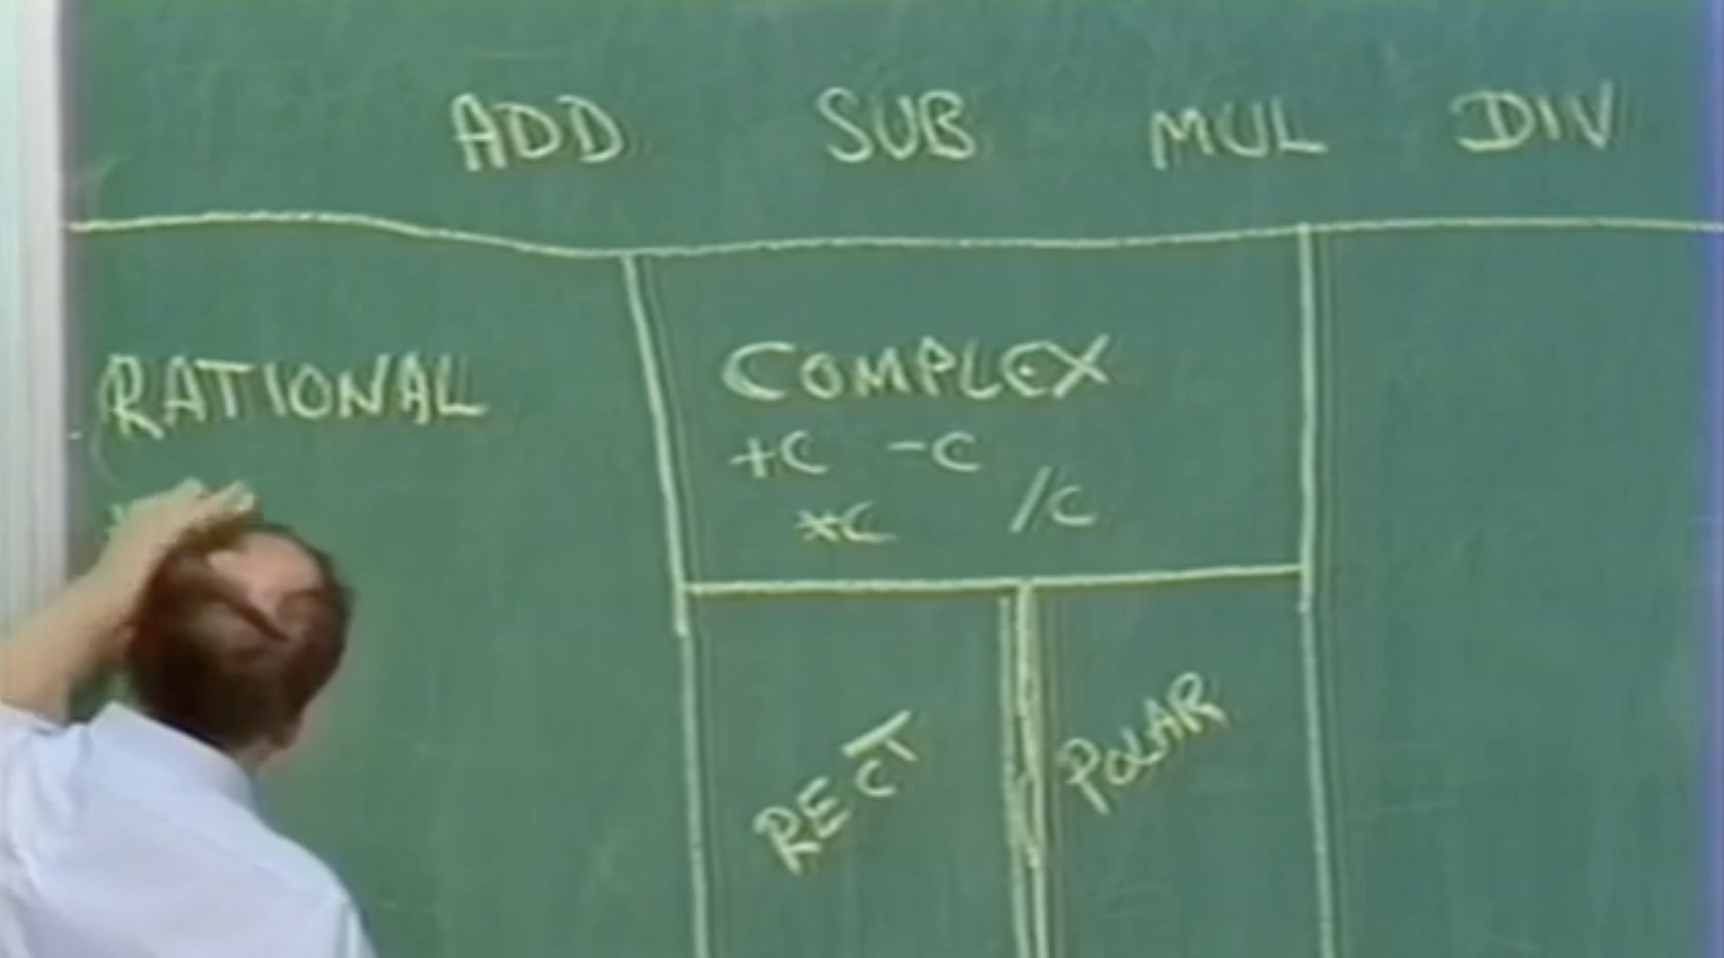 ADD SUB MUL DIV
RATIONAL
COMPLEX
+C -C
*C /C
RECT
POLAR